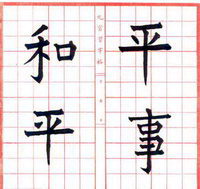 平事
和平